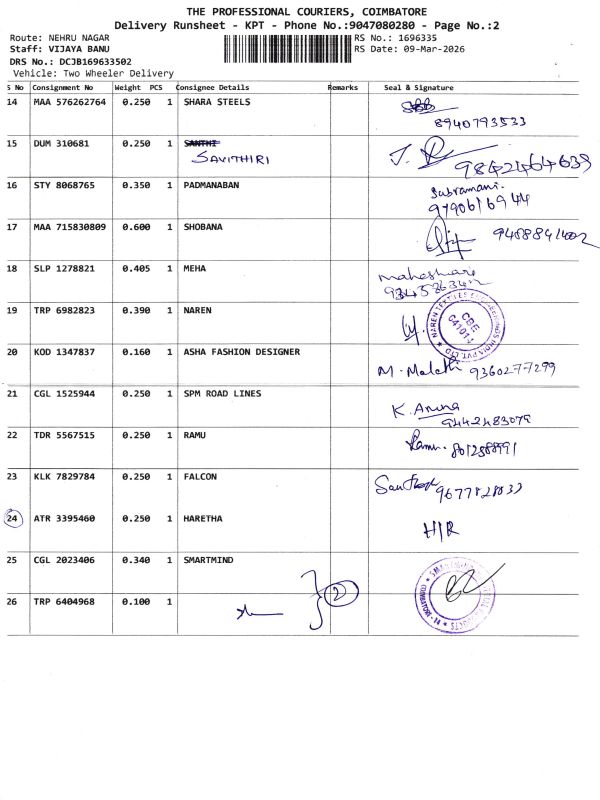 THE PROFESSIONAL COURIERS, COIMBATORE
Delivery Runsheet - KPT - Phone No.:9047080280 - Page No.:2
Route: NEHRU NAGAR RS No.: 1696335
Staff: VIJAYA BANU RS Date: 09-Mar-2026
DRS No.: DCJB169633502
Vehicle: Two Wheeler Delivery
S No Consignment No Weight PCS Consignee Details Remarks Seal & Signature
14 MAA 576262764 0.250 1 SHARA STEELS
8940793533
15 DUM 310681 0.250 1 SANTHI
SAVITHIRI 9842464639
16 STY 8068765 0.350 1 PADMANABAN Subramani.
9790616944
17 MAA 715830809 0.600 1 SHOBANA
18 SLP 1278821 0.405 1 MEHA Maheshwari
19 TRP 6982823 0.390 1 NAREN
CBE
641014
20 KOD 1347837 0.160 1 ASHA FASHION DESIGNER
M. Malathi 9360277299
21 CGL 1525944 0.250 1 SPM ROAD LINES
K. Aruna
9442483079
22 TDR 5567515 0.250 1 RAMU Ramu.
23 KLK 7829784 0.250 1 FALCON Santhosh
24 ATR 3395460 0.250 1 HARETHA
H/R
25 CGL 2023406 0.340 1 SMARTMIND
26 TRP 6404968 0.100 1
2